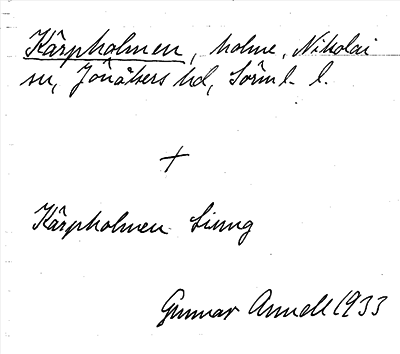 Kärpholmen, holme, Nikolai
sn, Jönåkers hd, Sörml. l.
+
Kärpholmen
Gunnar Arnell 1933